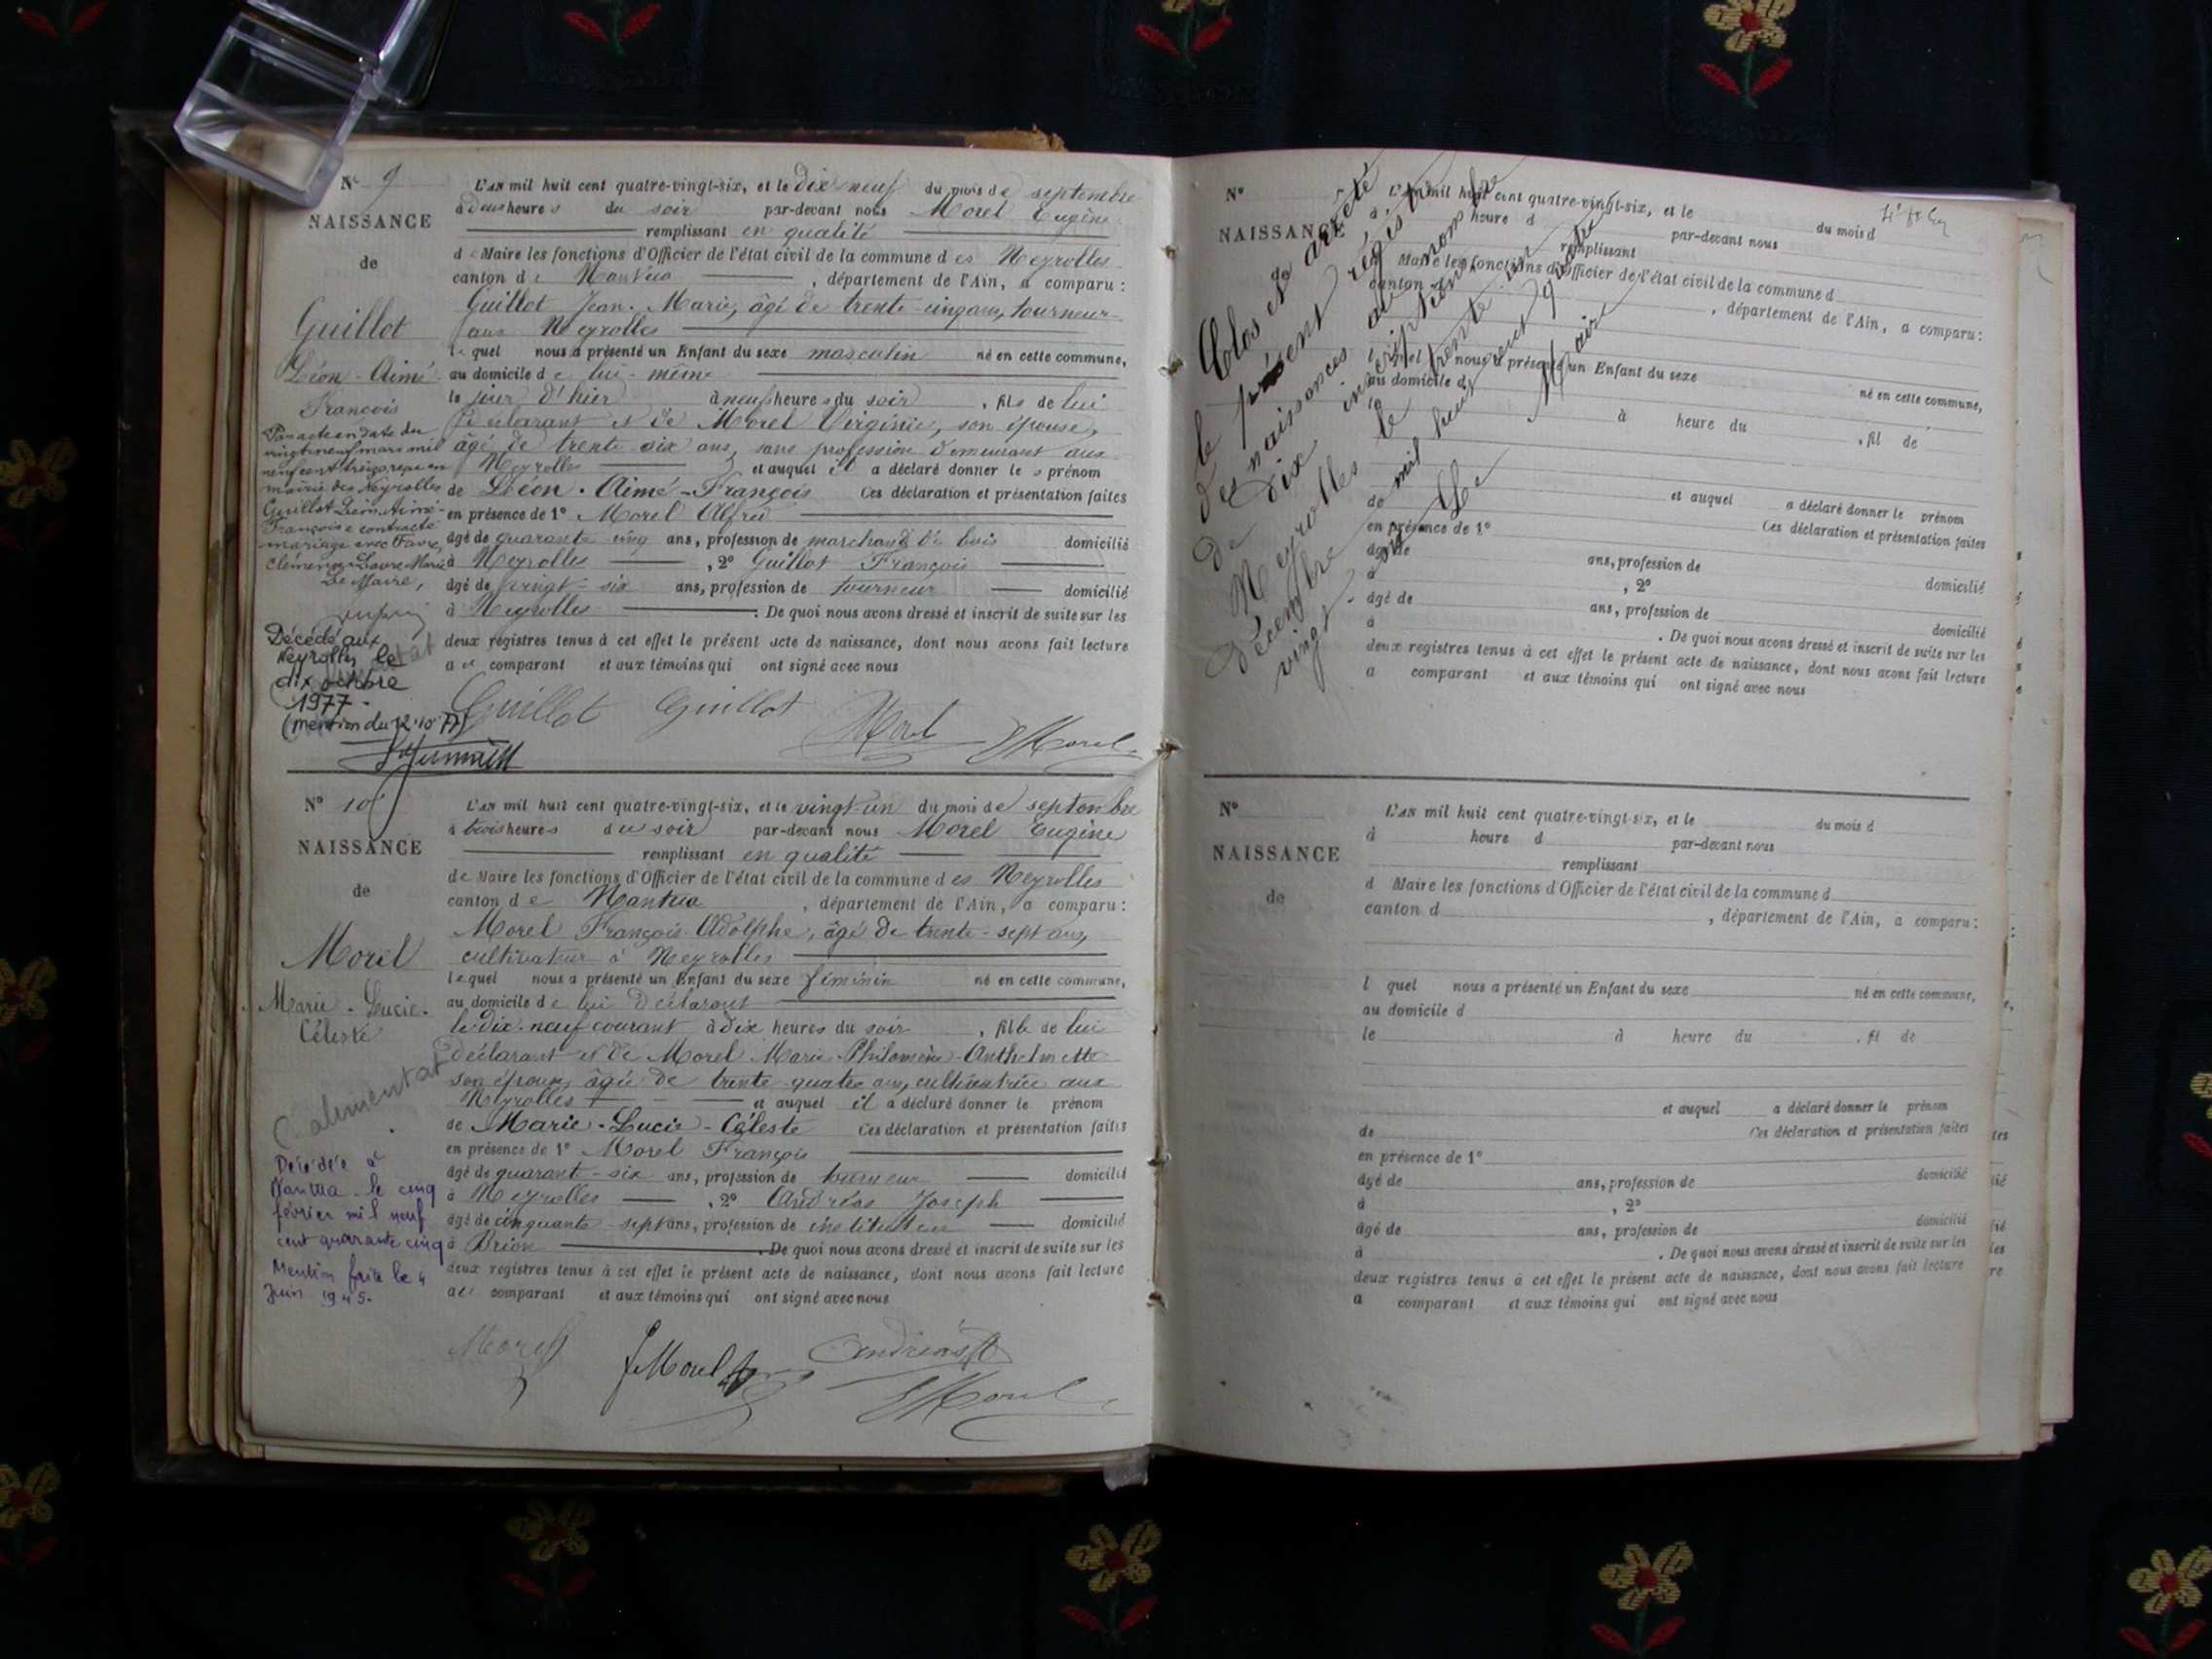 N° 9
NAISSANCE
de
Guillot
Léon-Aimé
François
Par acte en date du
vingt neuf mars mil
neuf cent treize reçu en
mairie des Neyrolles
Guillot Léon Aimé
François a contracté
mariage avec Favre,
Clémence Laure Marie
Le Maire,
Décédé aux
Neyrolles le
dix octobre
1977.
(mention du 12.10.77)
L'AN mil huit cent quatre-vingt-six, et le dix neuf du mois de septembre
à deux heures du soir par-devant nous Morel Eugène
remplissant en qualité
de Maire les fonctions d'Officier de l'état civil de la commune des Neyrolles
canton de Nantua, département de l'Ain, a comparu :
Guillot Jean-Marie, âgé de trente-cinq ans, tourneur
aux Neyrolles
lequel nous a présenté un Enfant du sexe masculin né en cette commune,
au domicile de lui-même
le jour d'hier à neuf heures du soir, fils de lui
déclarant et de Morel Virginie, son épouse,
âgé de trente six ans, sans profession demeurant aux
Neyrolles et auquel il a déclaré donner les prénom
de Léon-Aimé-François Ces déclaration et présentation faites
en présence de 1° Morel Alfred
âgé de quarante cinq ans, profession de marchand de bois domicilié
à Neyrolles, 2° Guillot François
âgé de vingt-six ans, profession de tourneur domicilié
à Neyrolles. De quoi nous avons dressé et inscrit de suite sur les
deux registres tenus à cet effet le présent acte de naissance, dont nous avons fait lecture
au comparant et aux témoins qui ont signé avec nous
Guillot Guillot Morel EMorel
N° 10
NAISSANCE
de
Morel
Marie-Lucie-
Céleste
C. alimentat
Décédée à
Nantua le cinq
février mil neuf
cent quarante cinq
Mention faite le 4
Juin 1945.
L'AN mil huit cent quatre-vingt-six, et le vingt-un du mois de septembre
à trois heures du soir par-devant nous Morel Eugène
remplissant en qualité
de Maire les fonctions d'Officier de l'état civil de la commune des Neyrolles
canton de Nantua, département de l'Ain, a comparu :
Morel François Adolphe, âgé de trente-sept ans,
cultivateur à Neyrolles
lequel nous a présenté un Enfant du sexe féminin né en cette commune,
au domicile de lui déclarant
le dix-neuf courant à dix heures du soir, fille de lui
déclarant et de Morel Marie-Philomène-Anthelmette
son épouse, âgée de trente quatre ans, cultivatrice aux
Neyrolles et auquel il a déclaré donner le prénom
de Marie-Lucie-Céleste Ces déclaration et présentation faites
en présence de 1° Morel François
âgé de quarante-six ans, profession de tourneur domicilié
à Neyrolles, 2° Andréas Joseph
âgé de cinquante-sept ans, profession de instituteur domicilié
à Brion. De quoi nous avons dressé et inscrit de suite sur les
deux registres tenus à cet effet le présent acte de naissance, dont nous avons fait lecture
au comparant et aux témoins qui ont signé avec nous
Morel FMorel Andréas EMorel
N°
NAISSANCE
de
L'AN mil huit cent quatre-vingt-six, et le du mois d
à heure d par-devant nous
remplissant
d Maire les fonctions d'Officier de l'état civil de la commune d
canton d, département de l'Ain, a comparu :
l quel nous a présenté un Enfant du sexe né en cette commune,
au domicile d
le à heure du, fil de
et auquel a déclaré donner le prénom
de Ces déclaration et présentation faites
en présence de 1°
âgé de ans, profession de domicilié
à, 2°
âgé de ans, profession de domicilié
à. De quoi nous avons dressé et inscrit de suite sur les
deux registres tenus à cet effet le présent acte de naissance, dont nous avons fait lecture
a comparant et aux témoins qui ont signé avec nous
Clos et arrêté
le présent registre
des naissances au nombre
de dix inscriptions
Neyrolles le trente un
décembre mil huit cent quatre
vingt six
Le Maire
N°
NAISSANCE
de
L'AN mil huit cent quatre-vingt-six, et le du mois d
à heure d par-devant nous
remplissant
d Maire les fonctions d'Officier de l'état civil de la commune d
canton d, département de l'Ain, a comparu :
l quel nous a présenté un Enfant du sexe né en cette commune,
au domicile d
le à heure du, fil de
et auquel a déclaré donner le prénom
de Ces déclaration et présentation faites
en présence de 1°
âgé de ans, profession de domicilié
à, 2°
âgé de ans, profession de domicilié
à. De quoi nous avons dressé et inscrit de suite sur les
deux registres tenus à cet effet le présent acte de naissance, dont nous avons fait lecture
a comparant et aux témoins qui ont signé avec nous